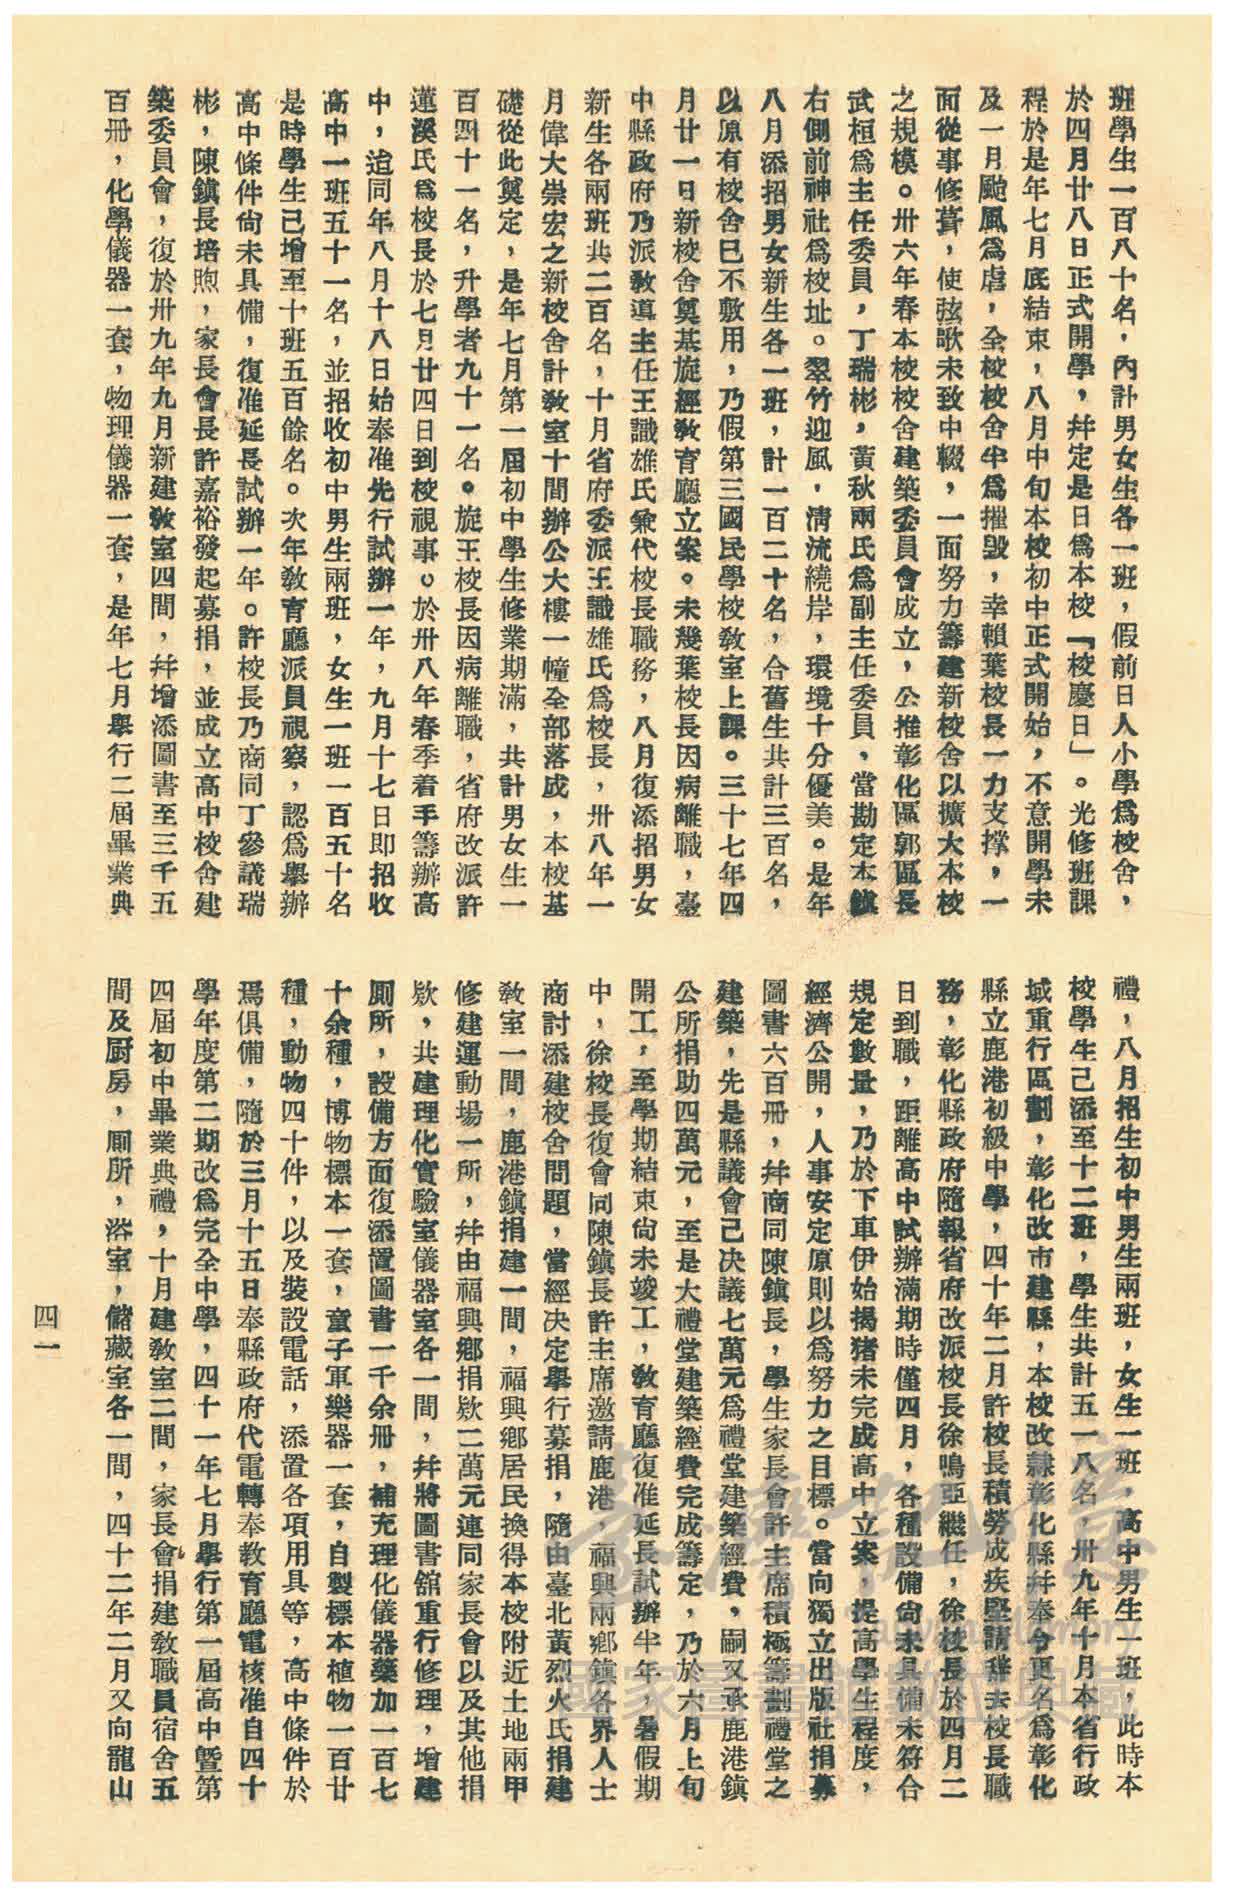 班學生一百八十名，內計男女生各一班，假前日人小學爲校舍，
於四月廿八日正式開學，幷定是日爲本校「校慶日」。光修班課
程於是年七月底結束，八月中旬本校初中正式開始，不意開學未
及一月颱風爲虐，全校校舍半爲摧毀，幸賴葉校長一力支撐，一
面從事修葺，使弦歌未致中輟，一面努力籌建新校舍以擴大本校
之規模。卅六年春本校校舍建築委員會成立，公推彰化區郭區長
武桓爲主任委員，丁瑞彬，黃秋兩氏爲副主任委員，當勘定本鎮
右側前神社爲校址。翠竹迎風，淸流繞岸，環境十分優美。是年
八月添招男女新生各一班，計一百二十名，合舊生共計三百名，
以原有校舍已不敷用，乃假第三國民學校敎室上課。三十七年四
月廿一日新校舍奠基旋經敎育廳立案。未幾葉校長因病離職，臺
中縣政府乃派敎導主任王識雄氏兼代校長職務，八月復添招男女
新生各兩班共二百名，十月省府委派王識雄氏爲校長，卅八年一
月偉大崇宏之新校舍計敎室十間辦公大樓一幢全部落成，本校基
礎從此奠定，是年七月第一屆初中學生修業期滿，共計男女生一
百四十一名，升學者九十一名。旋王校長因病離職，省府改派許
蓮溪氏爲校長於七月廿四日到校視事。於卅八年春季着手籌辦高
中，迨同年八月十八日始奉准先行試辦一年，九月十七日即招收
高中一班五十一名，並招收初中男生兩班，女生一班一百五十名
是時學生已增至十班五百餘名。次年敎育廳派員視察，認爲舉辦
高中條件尙未具備，復准延長試辦一年。許校長乃商同丁參議瑞
彬，陳鎮長培煦，家長會長許嘉裕發起募捐，並成立高中校舍建
築委員會，復於卅九年九月新建敎室四間，幷增添圖書至三千五
百冊，化學儀器一套，物理儀器一套，是年七月舉行二屆畢業典
禮，八月招生初中男生兩班，女生一班，高中男生一班，此時本
校學生已添至十二班，學生共計五一八名，卅九年十月本省行政
域重行區劃，彰化改市建縣，本校改隸彰化縣幷奉令更名爲彰化
縣立鹿港初級中學，四十年二月許校長積勞成疾堅請辭去校長職
務，彰化縣政府隨報省府改派校長徐鳴亞繼任，徐校長於四月二
日到職，距離高中試辦滿期時僅四月，各種設備尙未具備未符合
規定數量，乃於下車伊始揭猪未完成高中立案，提高學生程度，
經濟公開，人事安定原則以爲努力之目標。當向獨立出版社捐募
圖書六百冊，幷商同陳鎮長，學生家長會許主席積極籌劃禮堂之
建築，先是縣議會已決議七萬元爲禮堂建築經費，嗣又承鹿港鎮
公所捐助四萬元，至是大禮堂建築經費完成籌定，乃於六月上旬
開工，至學期結束尙未竣工，敎育廳復准延長試辦半年，暑假期
中，徐校長復會同陳鎮長許主席邀請鹿港，福興兩鄉鎮各界人士
商討添建校舍問題，當經決定舉行募捐，隨由臺北黃烈火氏捐建
敎室一間，鹿港鎮捐建一間，福興鄉居民換得本校附近土地兩甲
修建運動場一所，幷由福興鄉捐欵二萬元連同家長會以及其他捐
欵，共建理化實驗室儀器室各一間，幷將圖書舘重行修理，增建
厠所，設備方面復添置圖書一千余冊，補充理化儀器藥加一百七
十余種，博物標本一套，童子軍樂器一套，自製標本植物一百廿
種，動物四十件，以及裝設電話，添置各項用具等，高中條件於
焉俱備，隨於三月十五日奉縣政府代電轉奉敎育廳電核准自四十
學年度第二期改爲完全中學，四十一年七月舉行第一屆高中暨第
四屆初中畢業典禮，十月建敎室二間，家長會捐建敎職員宿舍五
間及厨房，厠所，浴室，儲藏室各一間，四十二年二月又向龍山
四一
臺灣記憶
Taiwan Memory
國家圖書館數位典藏